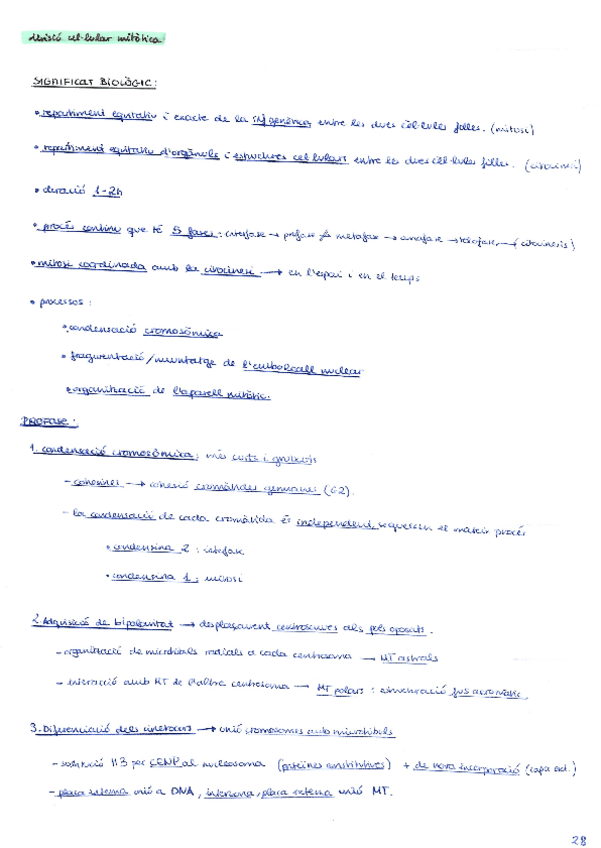 divisió cel·lular mitòtica
SIGNIFICAT BIOLÒGIC:
• repartiment equitatiu i exacte de la inf genètica entre les dues cèl·lules filles. (mitosi)
• repartiment equitatiu d'orgànuls i estructures cel·lulars entre les dues cèl·lules filles. (citocinesi)
• duració 1-2h
• procés continu que té 5 fases: interfase → profase → metafase → anafase → telofase → (citocinesis)
• mitosi coordinada amb la citocinesi → en l'espai i en el temps
• processos:
• condensació cromosòmica
• fragmentació/muntatge de l'embolcall nuclear
• organització de l'aparell mitòtic.
PROFASE:
1. condensació cromosòmica: més curts i gruixuts
- cohesines → cohesió cromàtides germanes (G2).
- la condensació de cada cromàtida és independent, segueixen el mateix procés
• condensina 2: interfase
• condensina 1: mitosi
2. Adquisició de bipolaritat → desplaçament centrosomes als pols oposats.
- organització de microtúbuls radials a cada centrosoma → MT astrals
- interacció amb MT de l'altre centrosoma → MT polars: estructuració fus acromàtic.
3. Diferenciació dels cinetocors → unió cromosomes amb microtúbuls
- substitució H3 per CENP al nucleosoma (proteïnes constitutives) + de nova incorporació (capa ext.)
- placa interna unió a DNA, interzona, placa externa unió MT.
28